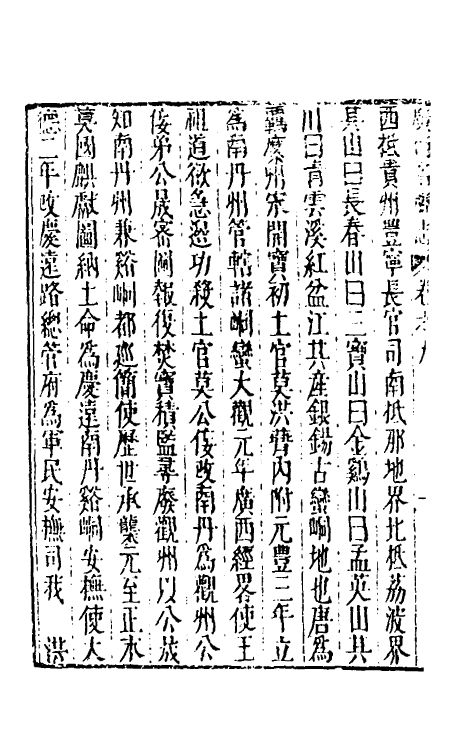 西抵貴州豐寧長官司南抵那地界北抵荔波界
其山曰長春山曰三寶山曰金鷄山曰孟英山其
川曰青雲溪紅盆江其産銀錫古蠻峒地也唐爲
羈縻州宋開寶初土官莫洪𦙍内附元豐三年立
爲南丹州管轄諸峒蠻大觀元年廣西經畧使王
祖道欲急邊功殺土官莫公佞改南丹爲觀州公
佞弟公晟密圖報復焚寶積監尋廢觀州以公晟
知南丹州兼谿峒都巡簡使歷世承襲元至正末
莫國麒獻圖納土命爲慶遠南丹谿峒安撫使大
德二年改慶遠路總管府爲軍民安撫司我 洪